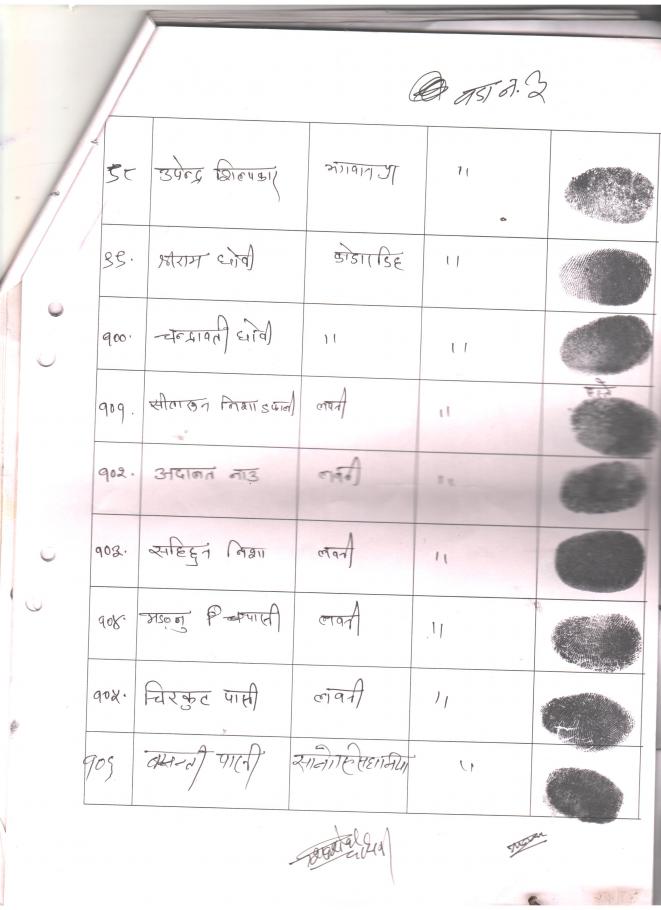 वडा नं. ३
९८ उपेन्द्र शिल्पकार भगवानपुर "
९९. श्रीराम धोवी कोडारडिह "
१००. चन्द्रावती धोवी " "
१०१. निशा लवनी "
१०२. अदालत नाउ लवनी "
१०३. सहिदुन निशा लवनी "
१०४. पासी लवनी "
१०५. चिरकुट पासी लवनी "
१०६ बसन्ती पासी "